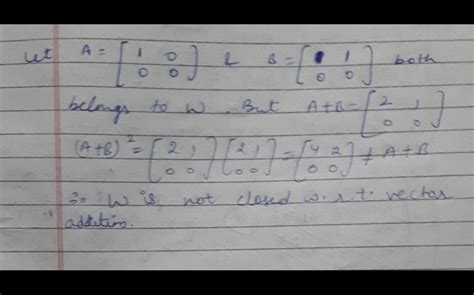 Let A = [1 0; 0 0] & B = [1 1; 0 0] both
belongs to W. But A+B = [2 1; 0 0]
(A+B)² = [2 1; 0 0] [2 1; 0 0] = [4 2; 0 0] ≠ A+B
∴ W is not closed w.s.t. vector
addition.